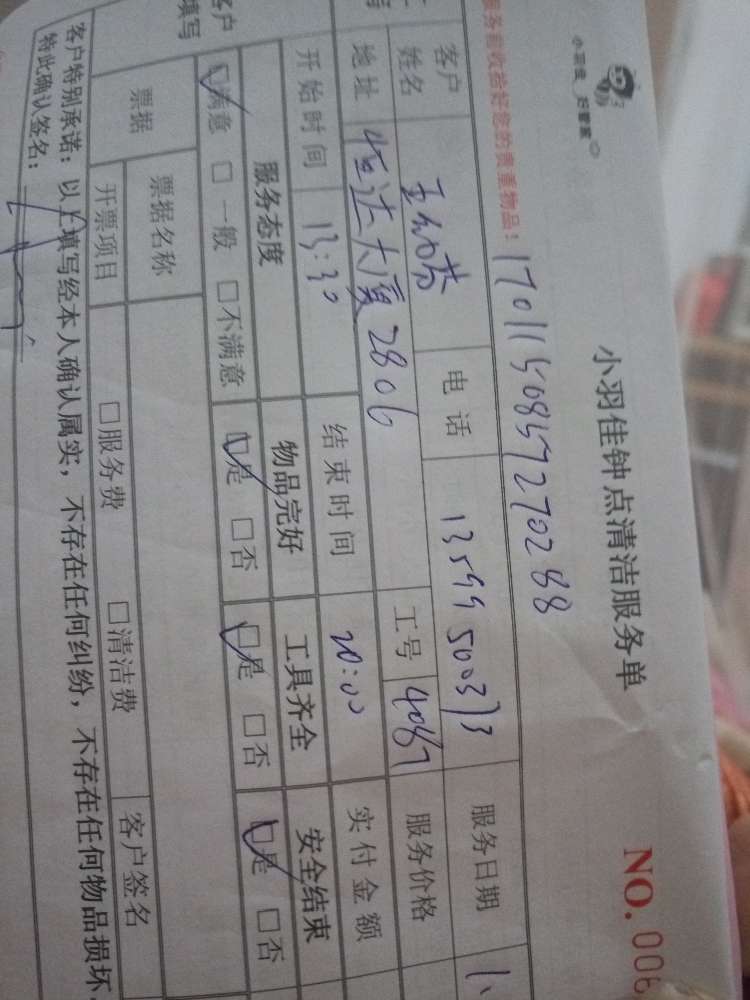 小羽佳 好管家
小羽佳钟点清洁服务单
NO. 006
服务前收拾好您的贵重物品！
客户姓名 电话 服务日期
地址 恒达大厦2806 工号 服务价格
开始时间 13:30 结束时间 20:00 实付金额
客户填写
服务态度 物品完好 工具齐全 安全结束
□满意 □一般 □不满意 □是 □否 □是 □否 □是 □否
票据 票据名称
开票项目 □服务费 □清洁费 客户签名
客户特别承诺：以上填写经本人确认属实，不存在任何纠纷，不存在任何物品损坏，
特此确认签名：